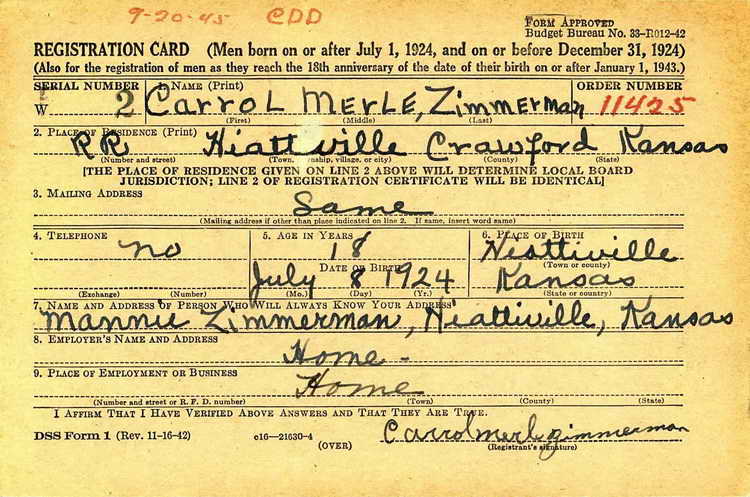 9-20-45 CDD
FORM APPROVED
Budget Bureau No. 33-R012-42
REGISTRATION CARD (Men born on or after July 1, 1924, and on or before December 31, 1924)
(Also for the registration of men as they reach the 18th anniversary of the date of their birth on or after January 1, 1943.)
SERIAL NUMBER 1. NAME (Print) ORDER NUMBER
W 2 Carrol Merle, Zimmerman 11425
(First) (Middle) (Last)
2. PLACE OF RESIDENCE (Print)
RR Hiattville Crawford Kansas
(Number and street) (Town, township, village, or city) (County) (State)
[THE PLACE OF RESIDENCE GIVEN ON LINE 2 ABOVE WILL DETERMINE LOCAL BOARD
JURISDICTION; LINE 2 OF REGISTRATION CERTIFICATE WILL BE IDENTICAL]
3. MAILING ADDRESS
Same
(Mailing address if other than place indicated on line 2. If same, insert word same)
4. TELEPHONE 5. AGE IN YEARS 6. PLACE OF BIRTH
no 18 Hiattiville
DATE OF BIRTH (Town or county)
July 8 1924 Kansas
(Exchange) (Number) (Mo.) (Day) (Yr.) (State or country)
7. NAME AND ADDRESS OF PERSON WHO WILL ALWAYS KNOW YOUR ADDRESS
Mannie Zimmerman, Hiattiville, Kansas
8. EMPLOYER'S NAME AND ADDRESS
Home -
9. PLACE OF EMPLOYMENT OR BUSINESS
Home
(Number and street or R. F. D. number) (Town) (County) (State)
I AFFIRM THAT I HAVE VERIFIED ABOVE ANSWERS AND THAT THEY ARE TRUE.
DSS Form 1 (Rev. 11-16-42) c16—21630-4 Carrol merle zimmerman
(OVER) (Registrant's signature)